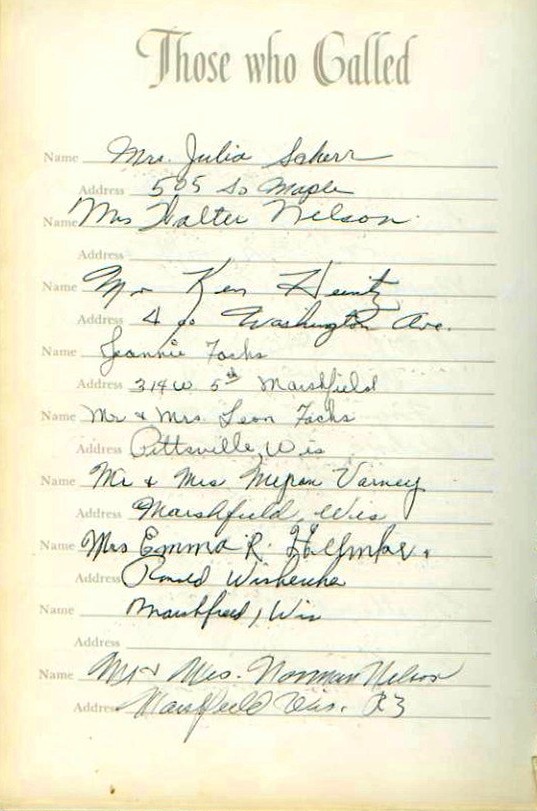 Those who Called
Name Mrs. Julia
Address 505 So Maple
Name Mrs Walter Nelson
Address
Name Mr Ken Heintz
Address Washington Ave.
Name Jeannie Fochs
Address 314 W. 5th Marshfield
Name Mr & Mrs. Leon Fochs
Address Pittsville, Wis
Name Mr & Mrs Myron Varney
Address Marshfield, Wis
Name Mrs Emma R.
Address Ronald
Name Marshfield, Wis
Address
Name Mr & Mrs. Norman Nelson
Address Marshfield Wis. R3